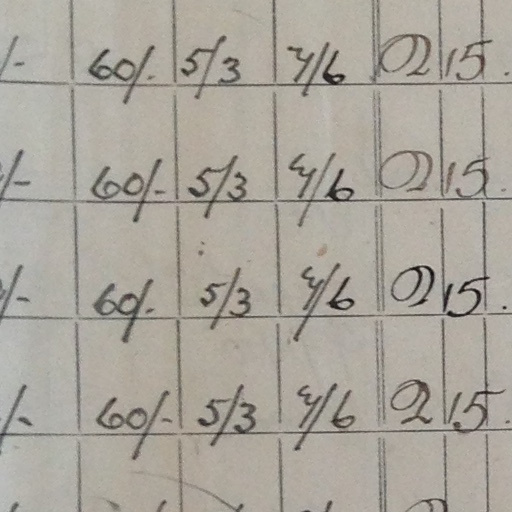 /- 60/- 5/3 4/6 2 15.
/- 60/- 5/3 4/6 2 15.
/- 60/- 5/3 4/6 2 15.
/- 60/- 5/3 4/6 2 15.